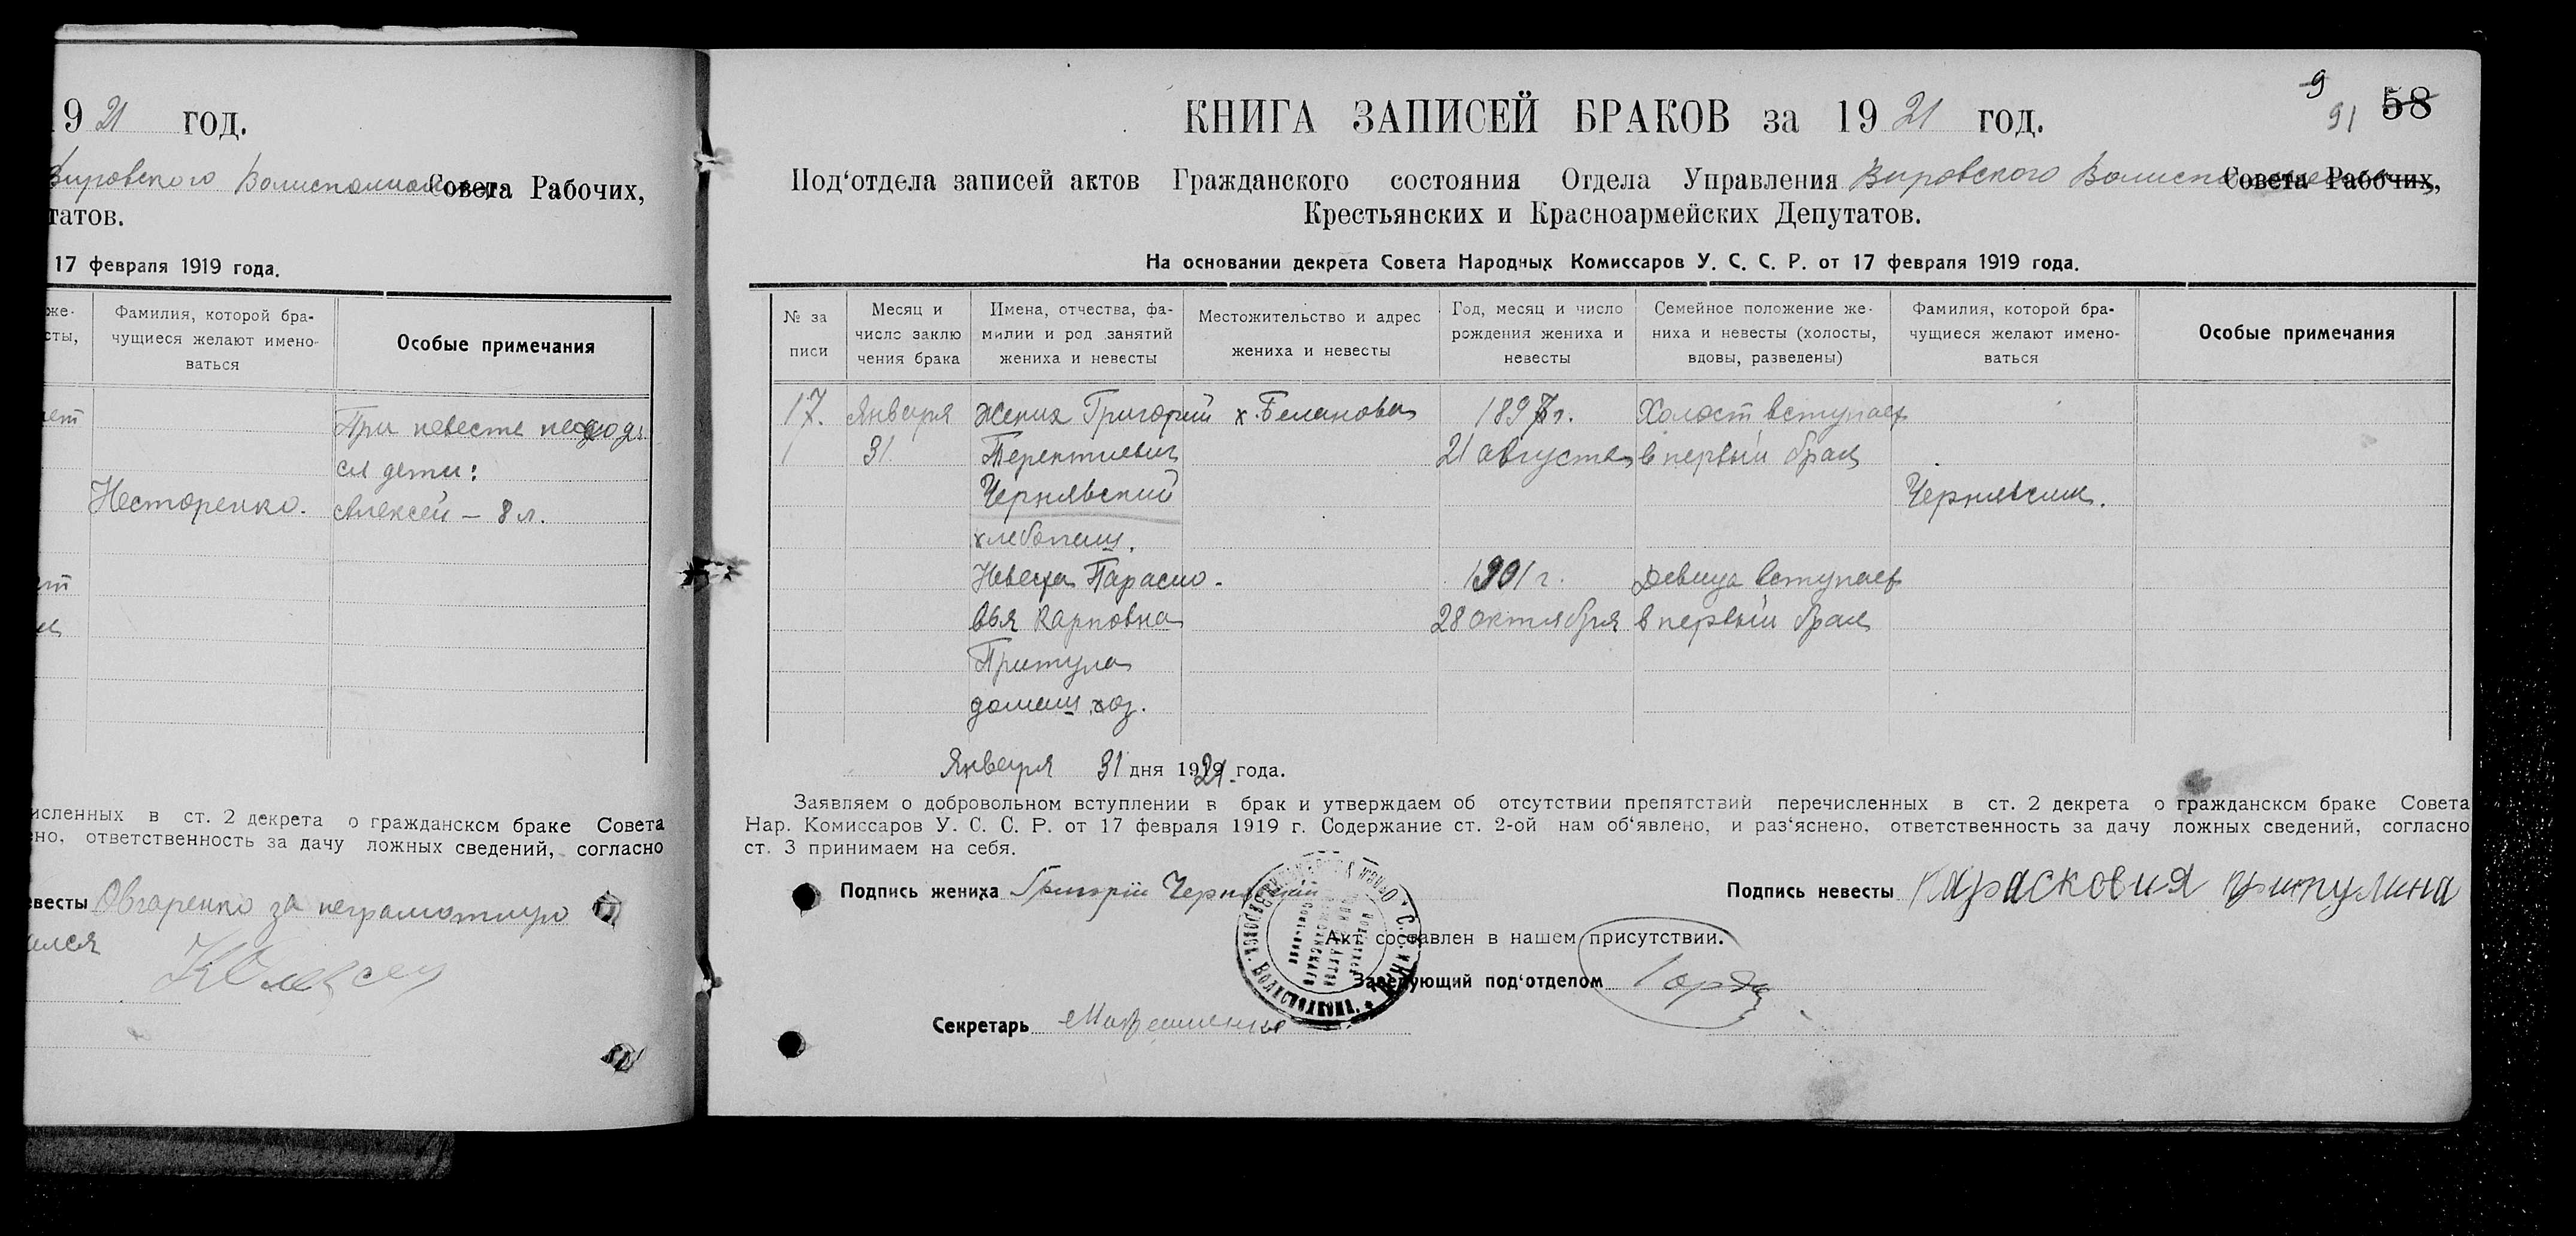 19 21 год.
Вировского Волисполкома Совета Рабочих,
татов.
17 февраля 1919 года.
Фамилия, которой бра-
чущиеся желают имено-
ваться
Особые примечания
При невесте находят
ся дети:
Несторенко. Алексей — 8 л.
исленных в ст. 2 декрета о гражданском браке Совета
ено, ответственность за дачу ложных сведений, согласно
евесты Овчаренко за неграмотную
ился
КНИГА ЗАПИСЕЙ БРАКОВ за 19 21 год.
9
91 58
Под‘отдела записей актов Гражданского состояния Отдела Управления Вировского Волисполкома Совета Рабочих,
Крестьянских и Красноармейских Депутатов.
На основании декрета Совета Народных Комиссаров У. С. С. Р. от 17 февраля 1919 года.
№ за
писи
Месяц и
число заклю
чения брака
Имена, отчества, фа-
милии и род занятий
жениха и невесты
Местожительство и адрес
жениха и невесты
Год, месяц и число
рождения жениха и
невесты
Семейное положение же-
ниха и невесты (холосты,
вдовы, разведены)
Фамилия, которой бра-
чущиеся желают имено-
ваться
Особые примечания
17. Января Жених Григорий х. Беланова 1897 г. Холост вступает
31 Терентиевич 21 августа в первый брак
Чернявский Чернявские.
хлебопаш.
Невеста Параско- 1901 г. Девица вступает
вья Карповна 28 октября в первый брак
Притула
домаш. хоз.
Января 31 дня 1921 года.
Заявляем о добровольном вступлении в брак и утверждаем об отсутствии препятствий перечисленных в ст. 2 декрета о гражданском браке Совета
Нар. Комиссаров У. С. С. Р. от 17 февраля 1919 г. Содержание ст. 2-ой нам об‘явлено, и раз‘яснено, ответственность за дачу ложных сведений, согласно
ст. 3 принимаем на себя.
Подпись жениха Григорій Чернявский Подпись невесты Парасковия притулина
Акт составлен в нашем присутствии.
Заведующий под‘отделом
Секретарь